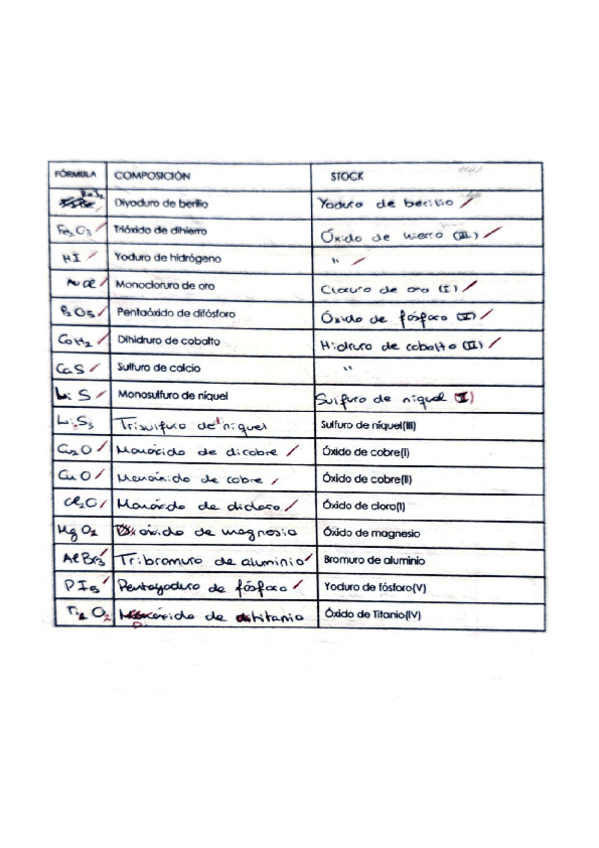 FÓRMULA COMPOSICIÓN STOCK
BeI2 Diyoduro de berilio Yoduro de berilio
Fe2O3 Trióxido de dihierro Óxido de hierro (III)
HI Yoduro de hidrógeno "
AuCl Monocloruro de oro Cloruro de oro (I)
P2O5 Pentaóxido de difósforo Óxido de fósforo (V)
CoH2 Dihidruro de cobalto Hidruro de cobalto (II)
CaS Sulfuro de calcio "
Ni S Monosulfuro de níquel Sulfuro de niquel (II)
Ni2S3 Trisulfuro de niquel Sulfuro de níquel(III)
Cu2O Monóxido de dicobre Óxido de cobre(I)
CuO Monóxido de cobre Óxido de cobre(II)
Cl2O Monóxido de dicloro Óxido de cloro(I)
MgO2 óxido de magnesio Óxido de magnesio
AlBr3 Tribromuro de aluminio Bromuro de aluminio
PI5 Pentayoduro de fósforo Yoduro de fósforo(V)
Ti O2 de titanio Óxido de Titanio(IV)